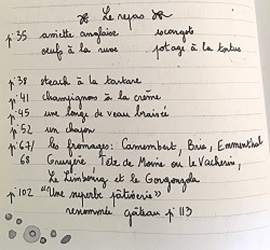 Le repas
p.35 assiette anglaise escargots
oeufs à la russe potage à la tortue
p.38 steack à la tartare
p.41 champignons à la crème
p.45 une longe de veau braisée
p.52 un chapon
p.67/ les fromages: Camembert, Brie, Emmenthal
68 Gruyère Tête de Moine ou le Vacherin,
Le Limbourg et le Gorgonzola
p.102 "Une superbe pâtisserie»
renommée gâteau p 113